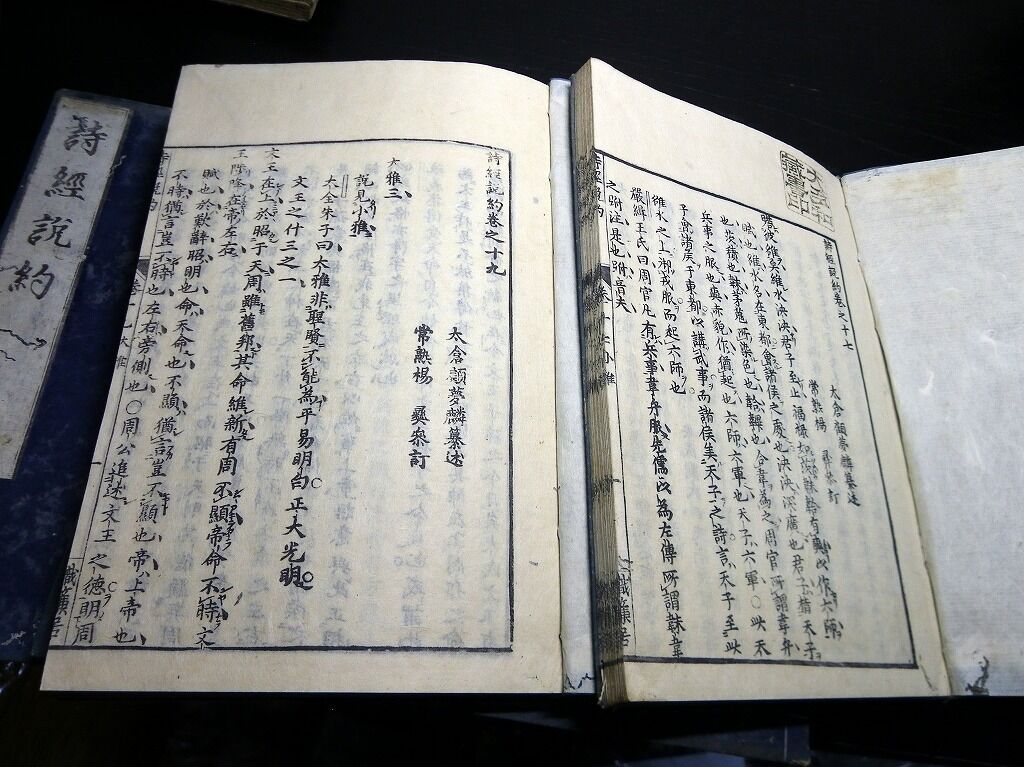 詩經說約
詩經說約卷之十七
太倉顧夢麟纂述
常熟楊彞參訂
瞻彼維矣維水泱泱君子至止福祿如茨韎韐有奭以作六師
賦也維水名在東都會諸侯之處也泱泱深廣也君子指天子
也茨積也韎茅蒐所染色也韐韠也合韋為之周官所謂韋弁
兵事之服也奭赤貌作猶起也六師六軍也天子六軍○此天
子會諸侯于東都以講武事而諸侯美天子之詩言天子至此
維水之上御戎服而起六師也
嚴緝王氏曰周官凡有兵事韋弁服先儒以為左傳所謂韎韋
之跗注是也跗音夫
詩經說約卷之十九
太倉顧夢麟纂述
常熟楊彞參訂
大雅三
說見小雅
大全朱子曰大雅非聖賢不能為平易明白正大光明○
文王之什三之一
文王在上於昭于天周雖舊邦其命維新有周不顯帝命不時文
王陟降在帝左右
賦也於歎辭昭明也命天命也不顯猶言豈不顯也帝上帝也
不時猶言豈不時也左右旁側也○周公追述文王之德明周
織簾居
織簾居